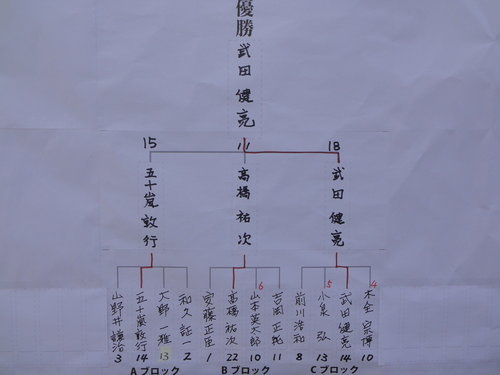 優勝
武田 健亮
15
11
18
五十嵐 敦行
高橋 祐次
武田 健亮
6
5
4
山野井 譲治
五十嵐敦行
大野 一雅
和久 証一
安藤正臣
高橋 祐次
山本英太郎
吉岡 正純
前川浩和
小泉 弘
武田健亮
木全 宗博
3
14
13
2
1
22
10
11
8
13
14
10
Aブロック
Bブロック
Cブロック